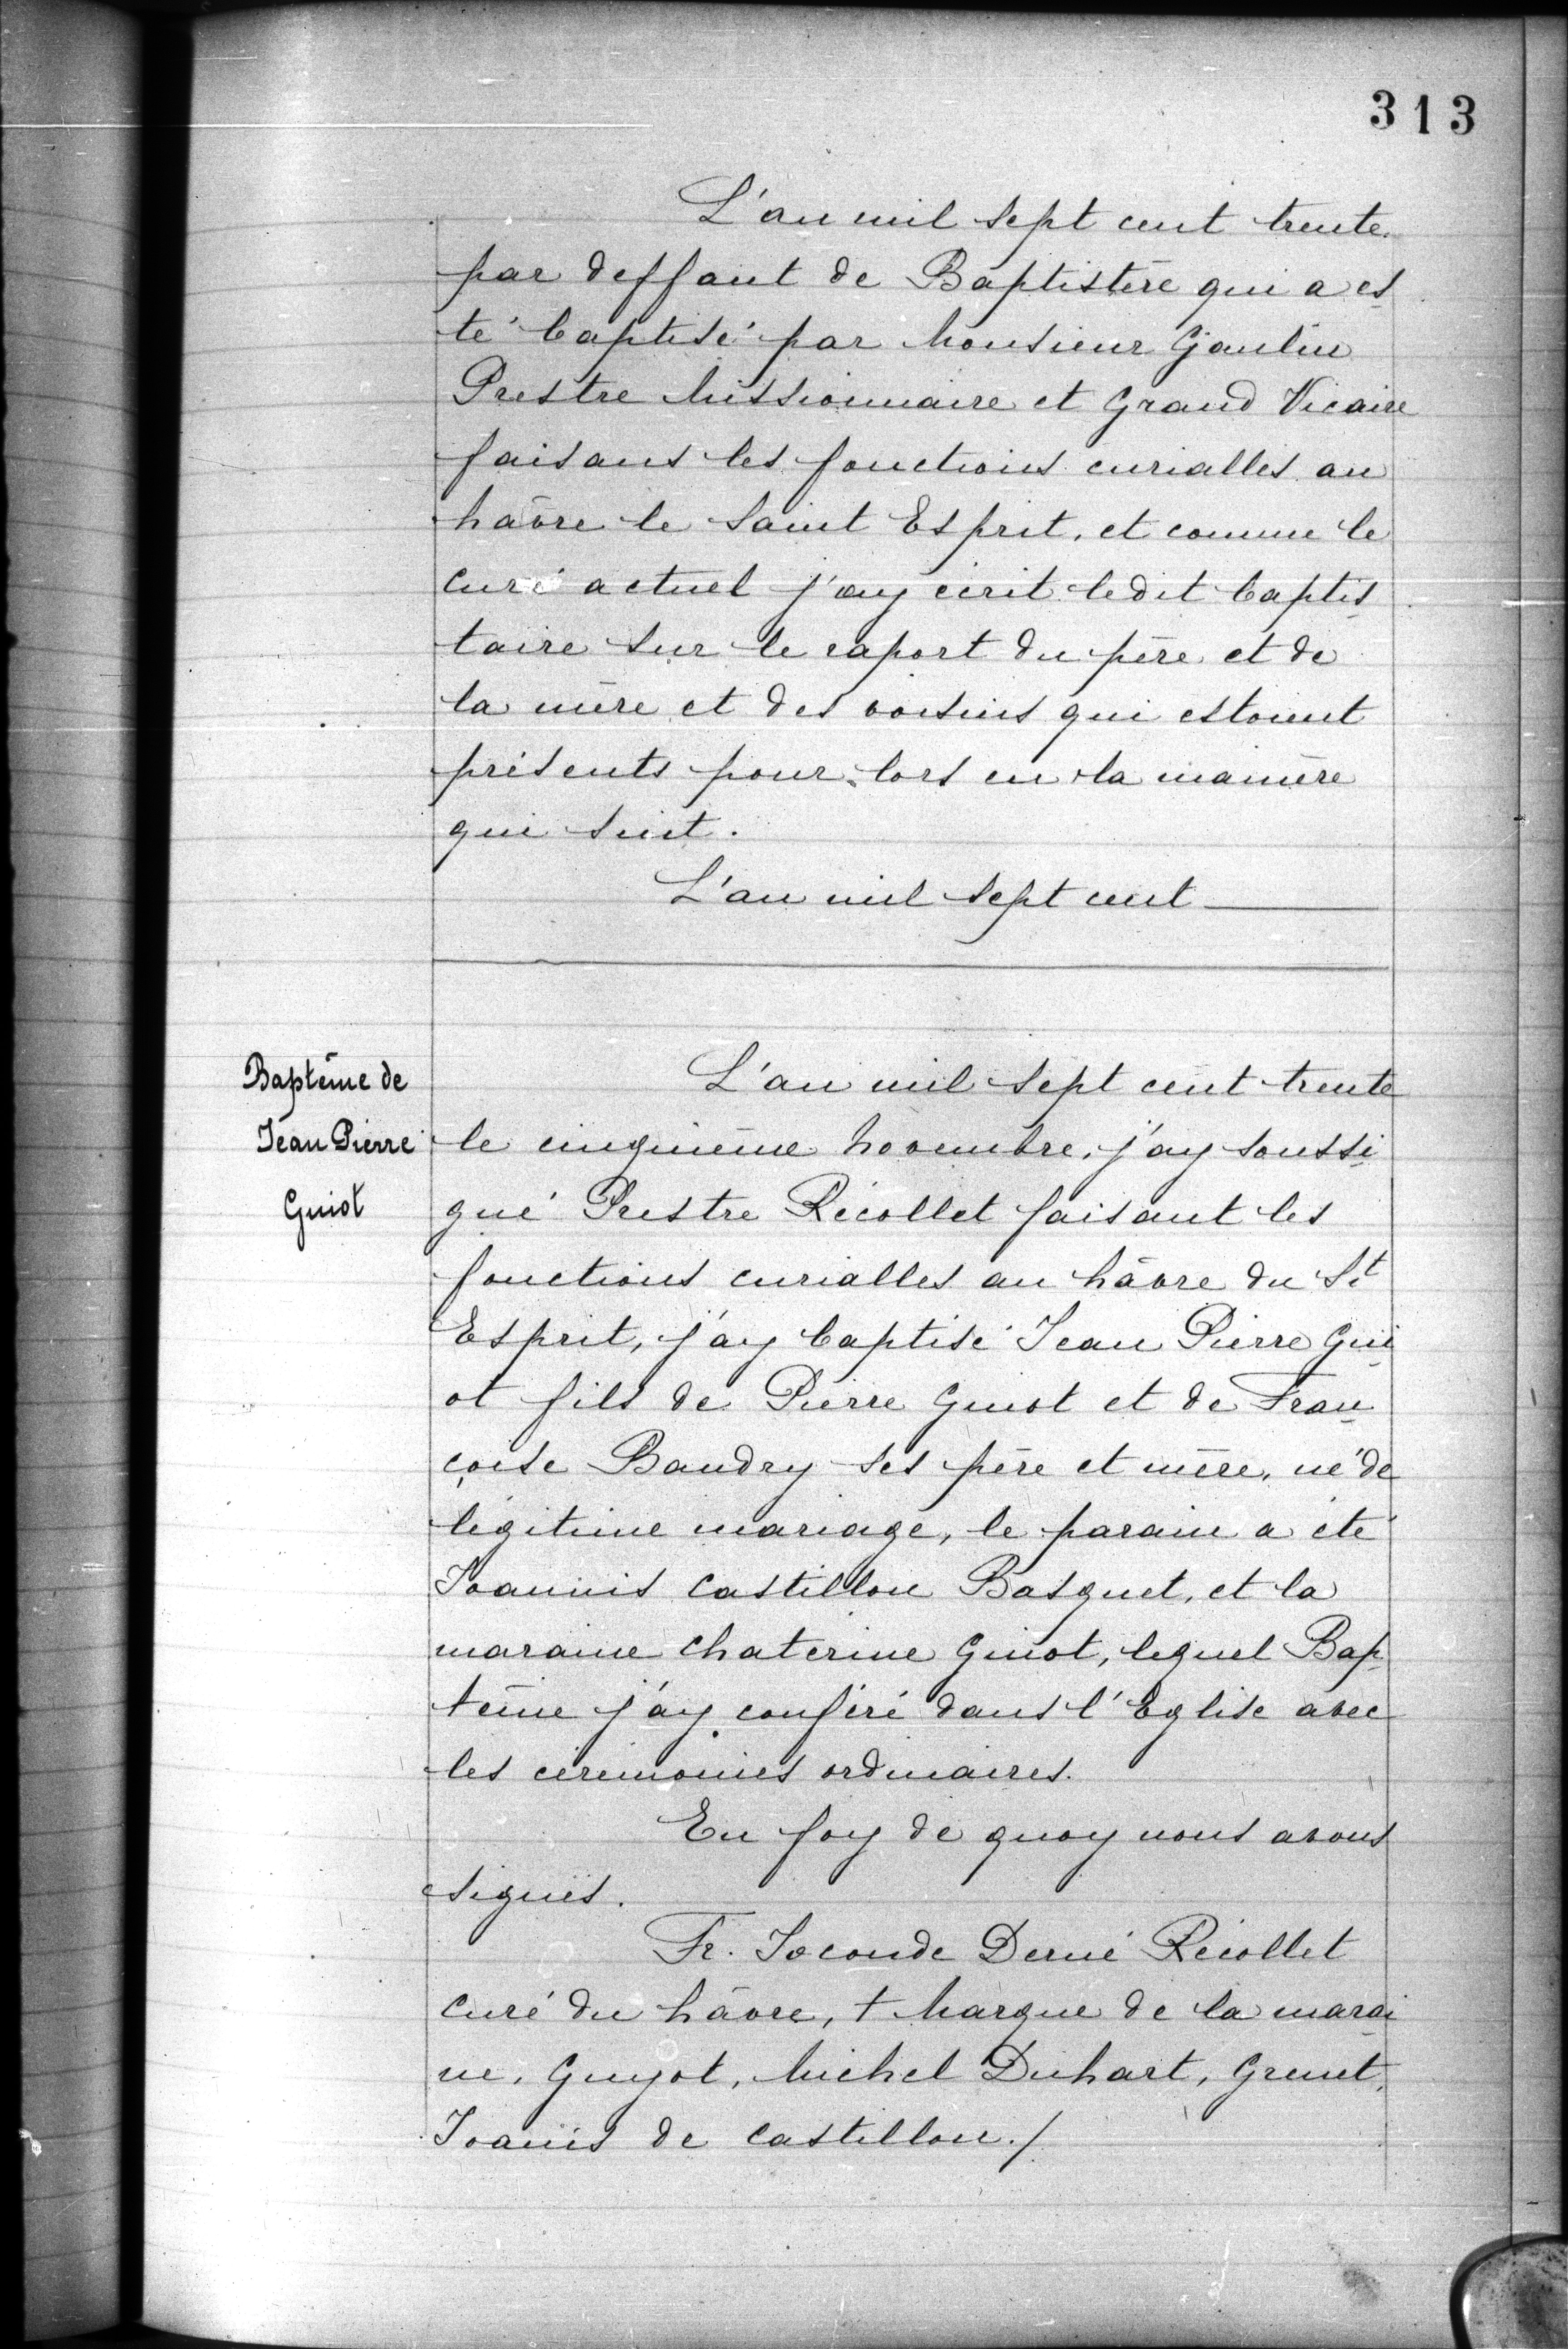 313
L'an mil sept cent trente
par deffaut de Baptistère qui a es
té baptisé par Monsieur Gaulin
Prestre Missionnaire et Grand Vicaire
faisans les fonctions curialles au
hâvre le Saint Esprit, et comme le
curé actuel j'ay écrit ledit baptis
taire sur le raport du père et de
la mère et des voisins qui estoient
présents pour lors en la manière
qui suit.
L'an mil sept cent
Baptême de
Jean Pierre
Guiot
L'an mil sept cent trente
le cinquième Novembre, j'ay soussi
gné Prestre Récollet faisant les
fonctions curialles au hâvre du St
Esprit, j'ay baptisé Jean Pierre Gui
ot fils de Pierre Guiot et de Fran
çoise Baudry ses père et mère, né de
légitime mariage, le parain a été
Joannis Castillon Basquet, et la
maraine Chaterine Guiot, lequel Bap
tême j'ay conféré dans l'Eglise avec
les cérémonies ordinaires.
En foy de quoy nous avons
signés.
Fr. Joconde Derné Récollet
Curé du hâvre, † Marque de la marai
ne, Guyot, Michel Duhart, Grenet,
Joanis de Castillon./